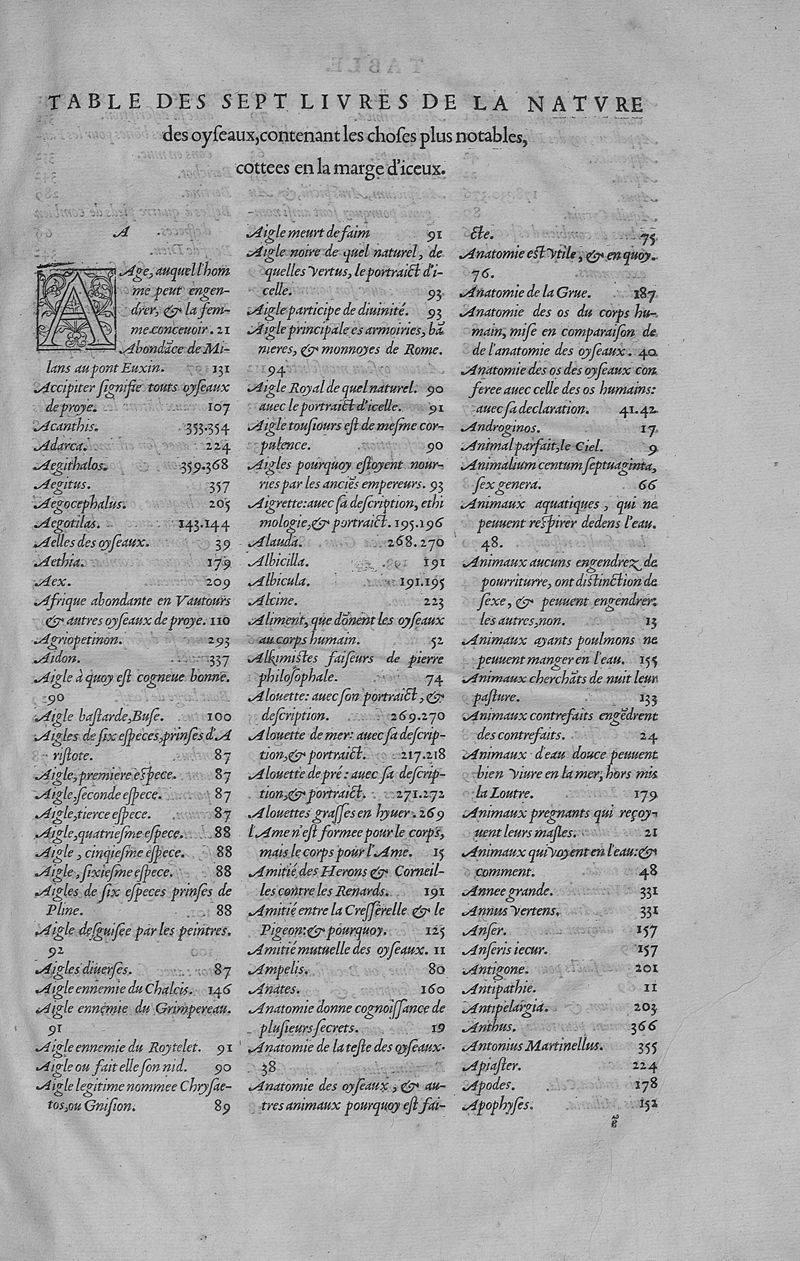 TABLE DES SEPT LIVRES DE LA NATVRE
des oyſeaux, contenant les choſes plus notables,
cottees en la marge d'iceux.
A
Age, auquel l'hom
me peut engen-
drer, & la fem-
me conceuoir. 21
Abondāce de Mi-
lans au pont Euxin. 131
Accipiter ſignifie touts oyſeaux
de proye. 107
Acanthis. 353.354
Adarca. 224
Aegithalos. 359.368
Aegitus. 357
Aegocephalus. 205
Aegotilas. 143.144
Aelles des oyſeaux. 39
Aethia. 179
Aex. 209
Afrique abondante en Vautours
& autres oyſeaux de proye. 110
Agriopetinon. 293
Aidon. 337
Aigle à quoy eſt cogneue bonne.
90
Aigle baſtarde, Buſe. 100
Aigles de ſix eſpeces, prinſes d'A
riſtote. 87
Aigle, premiere eſpece. 87
Aigle, ſeconde eſpece. 87
Aigle, tierce eſpece. 87
Aigle, quatrieſme eſpece. 88
Aigle, cinqieſme eſpece. 88
Aigle, ſixieſme eſpece. 88
Aigles de ſix eſpeces prinſes de
Pline. 88
Aigle deſguiſee par les peintres.
92
Aigles diuerſes. 87
Aigle ennemie du Chalcis. 146
Aigle ennemie du Grimpereau.
91
Aigle ennemie du Roytelet. 91
Aigle ou fait elle ſon nid. 90
Aigle legitime nommee Chryſae-
tos, ou Gniſion. 89
Aigle meurt de faim 91
Aigle noire de quel naturel, de
quelles vertus, le portraict d'i-
celle. 93
Aigle participe de diuinité. 93
Aigle principale es armoiries, bā
nieres, & monnoyes de Rome.
94
Aigle Royal de quel naturel. 90
auec le portraict d'icelle. 91
Aigle touſiours eſt de meſme cor-
pulence. 90
Aigles pourquoy eſtoyent nour-
ries par les anciēs empereurs. 93
Aigrette: auec ſa deſcription, ethi
mologie, & portraict. 195.196
Alauda. 268.270
Albicilla. 191
Albicula. 191.195
Alcine. 223
Aliment, que dōnent les oyſeaux
au corps humain. 52
Alkimiſtes faiſeurs de pierre
philoſophale. 74
Alouette: auec ſon portraict, &
deſcription. 269.270
Alouette de mer: auec ſa deſcrip-
tion, & portraict. 217.218
Alouette de pré: auec ſa deſcrip-
tion, & portraict. 271.272
Alouettes graſſes en hyuer. 269
l'Ame n'eſt formee pour le corps,
mais le corps pour l'Ame. 15
Amitié des Herons & Corneil-
les contre les Renards. 191
Amitié entre la Creſſerelle & le
Pigeon: & pourquoy. 125
Amitié mutuelle des oyſeaux. 11
Ampelis. 80
Anates. 160
Anatomie donne cognoiſſance de
pluſieurs ſecrets. 19
Anatomie de la teſte des oyſeaux.
38
Anatomie des oyſeaux, & au-
tres animaux pourquoy eſt fai-
cte. 75
Anatomie eſt vtile, & en quoy.
76.
Anatomie de la Grue. 187
Anatomie des os du corps hu-
main, miſe en comparaiſon de
de l'anatomie des oyſeaux. 40
Anatomie des os des oyſeaux con
feree auec celle des os humains:
auec ſa declaration. 41.42
Androginos. 17
Animal parfait, le Ciel. 9
Animalium centum ſeptuaginta,
ſex genera. 66
Animaux aquatiques, qui ne
peuuent reſpirer dedens l'eau.
48.
Animaux aucuns engendrez de
pourriturre, ont diſtinction de
ſexe, & peuuent engendrer:
les autres, non. 13
Animaux ayants poulmons ne
peuuent manger en l'eau. 155
Animaux cherchāts de nuit leur
paſture. 133
Animaux contrefaits engēdrent
des contrefaits. 24
Animaux d'eau douce peuuent
bien viure en la mer, hors mis
la Loutre. 179
Animaux pregnants qui reçoy-
uent leurs maſles. 21
Animaux qui voyent en l'eau: &
comment. 48
Annee grande. 331
Annus vertens. 331
Anſer. 157
Anſeris iecur. 157
Antigone. 201
Antipathie. 11
Antipelargia. 203
Anthus. 366
Antonius Martinellus. 355
Apiaſter. 224
Apodes. 178
Apophyſes. 152